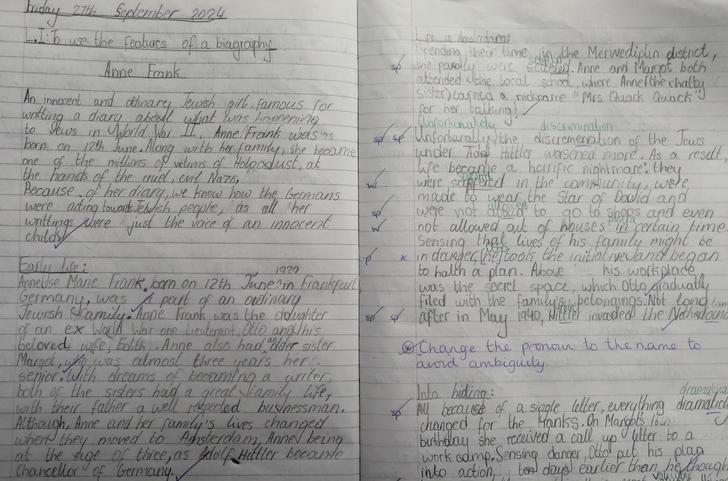 Friday 27th September 2024
L.I: To use the features of a biography
Anne Frank
An innocent and ordinary Jewish girl famous for
writing a diary about what was happening
to Jews in World War II, Anne Frank was
born on 12th June. Along with her family, she became
one of the millions of victims of Holgoslust, at
the hands of the cruel, evil Nazis.
Because of her diary, we know how the Germans
were acting towards Jewish people, as all her
writings were just the voice of an innocent
child.
Early life:
1929
Annelise Marie Frank, born on 12th June in Frankfurt
Germany, was part of an ordinary
Jewish family. Anne Frank was the daughter
of an ex World War one Lieutenant, Otto and his
beloved wife, Edith. Anne also had elder sister
Margot, who was almost three years her
senior. With dreams of becoming a writer,
both of the sisters had a great family life,
with their father a well respected businessman.
Although, Anne and her family's lives changed
when they moved to Amsterdam, Anne being
at the age of three, as Adolf Hittler became
Chancellor of Germany.
Life in Amsterdam:
Spending their time in the Merwediplin district,
sp the family were settled. Anne and Margot both
attended the local school, where Anne (the chatty
sister) earned a nickname "Mrs Quack Quack"
for her talking!
Unfortunately discrimination
sp sp Unfortunatly, the discremenation of the Jews
under Hittler worsened more. As a result,
life became a horrific nightmare: they
w were in the community, were
made to wear the Star of David and
sp were not to go to shops and even
w not allowed out of houses in certain time.
Sensing that lives of his family might be
p * in danger, [he] took the initiative and began
to hatch a plan. Above his workplace
was the secret space, which Otto gradually
filled with the family's belongings. Not long
sp after in May 1940, Hittler invaded the
* Change the pronoun to the name to
avoid ambiguity.
Into hiding:
dramatically
sp All because of a single letter, everything
changed for the Franks. On Margots
birthday she received a call up letter to a
work camp. Sensing danger, Otto put his plan
into action, ten days earlier than he thought